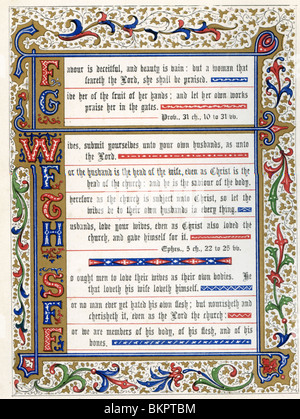 Favour is deceitful, and beauty is vain: but a woman that
feareth the Lord, she shall be praised.
Give her of the fruit of her hands; and let her own works
praise her in the gates.
Prov. 31 ch., 10 to 31 vv.
Wives, submit yourselves unto your own husbands, as unto
the Lord.
For the husband is the head of the wife, even as Christ is the
head of the church: and he is the saviour of the body.
Therefore as the church is subject unto Christ, so let the
wives be to their own husbands in every thing.
Husbands, love your wives, even as Christ also loved the
church, and gave himself for it.
Ephes., 5 ch., 22 to 25 vv.
So ought men to love their wives as their own bodies. He
that loveth his wife loveth himself.
For no man ever yet hated his own flesh; but nourisheth and
cherisheth it, even as the Lord the church
For we are members of his body, of his flesh, and of his
bones.